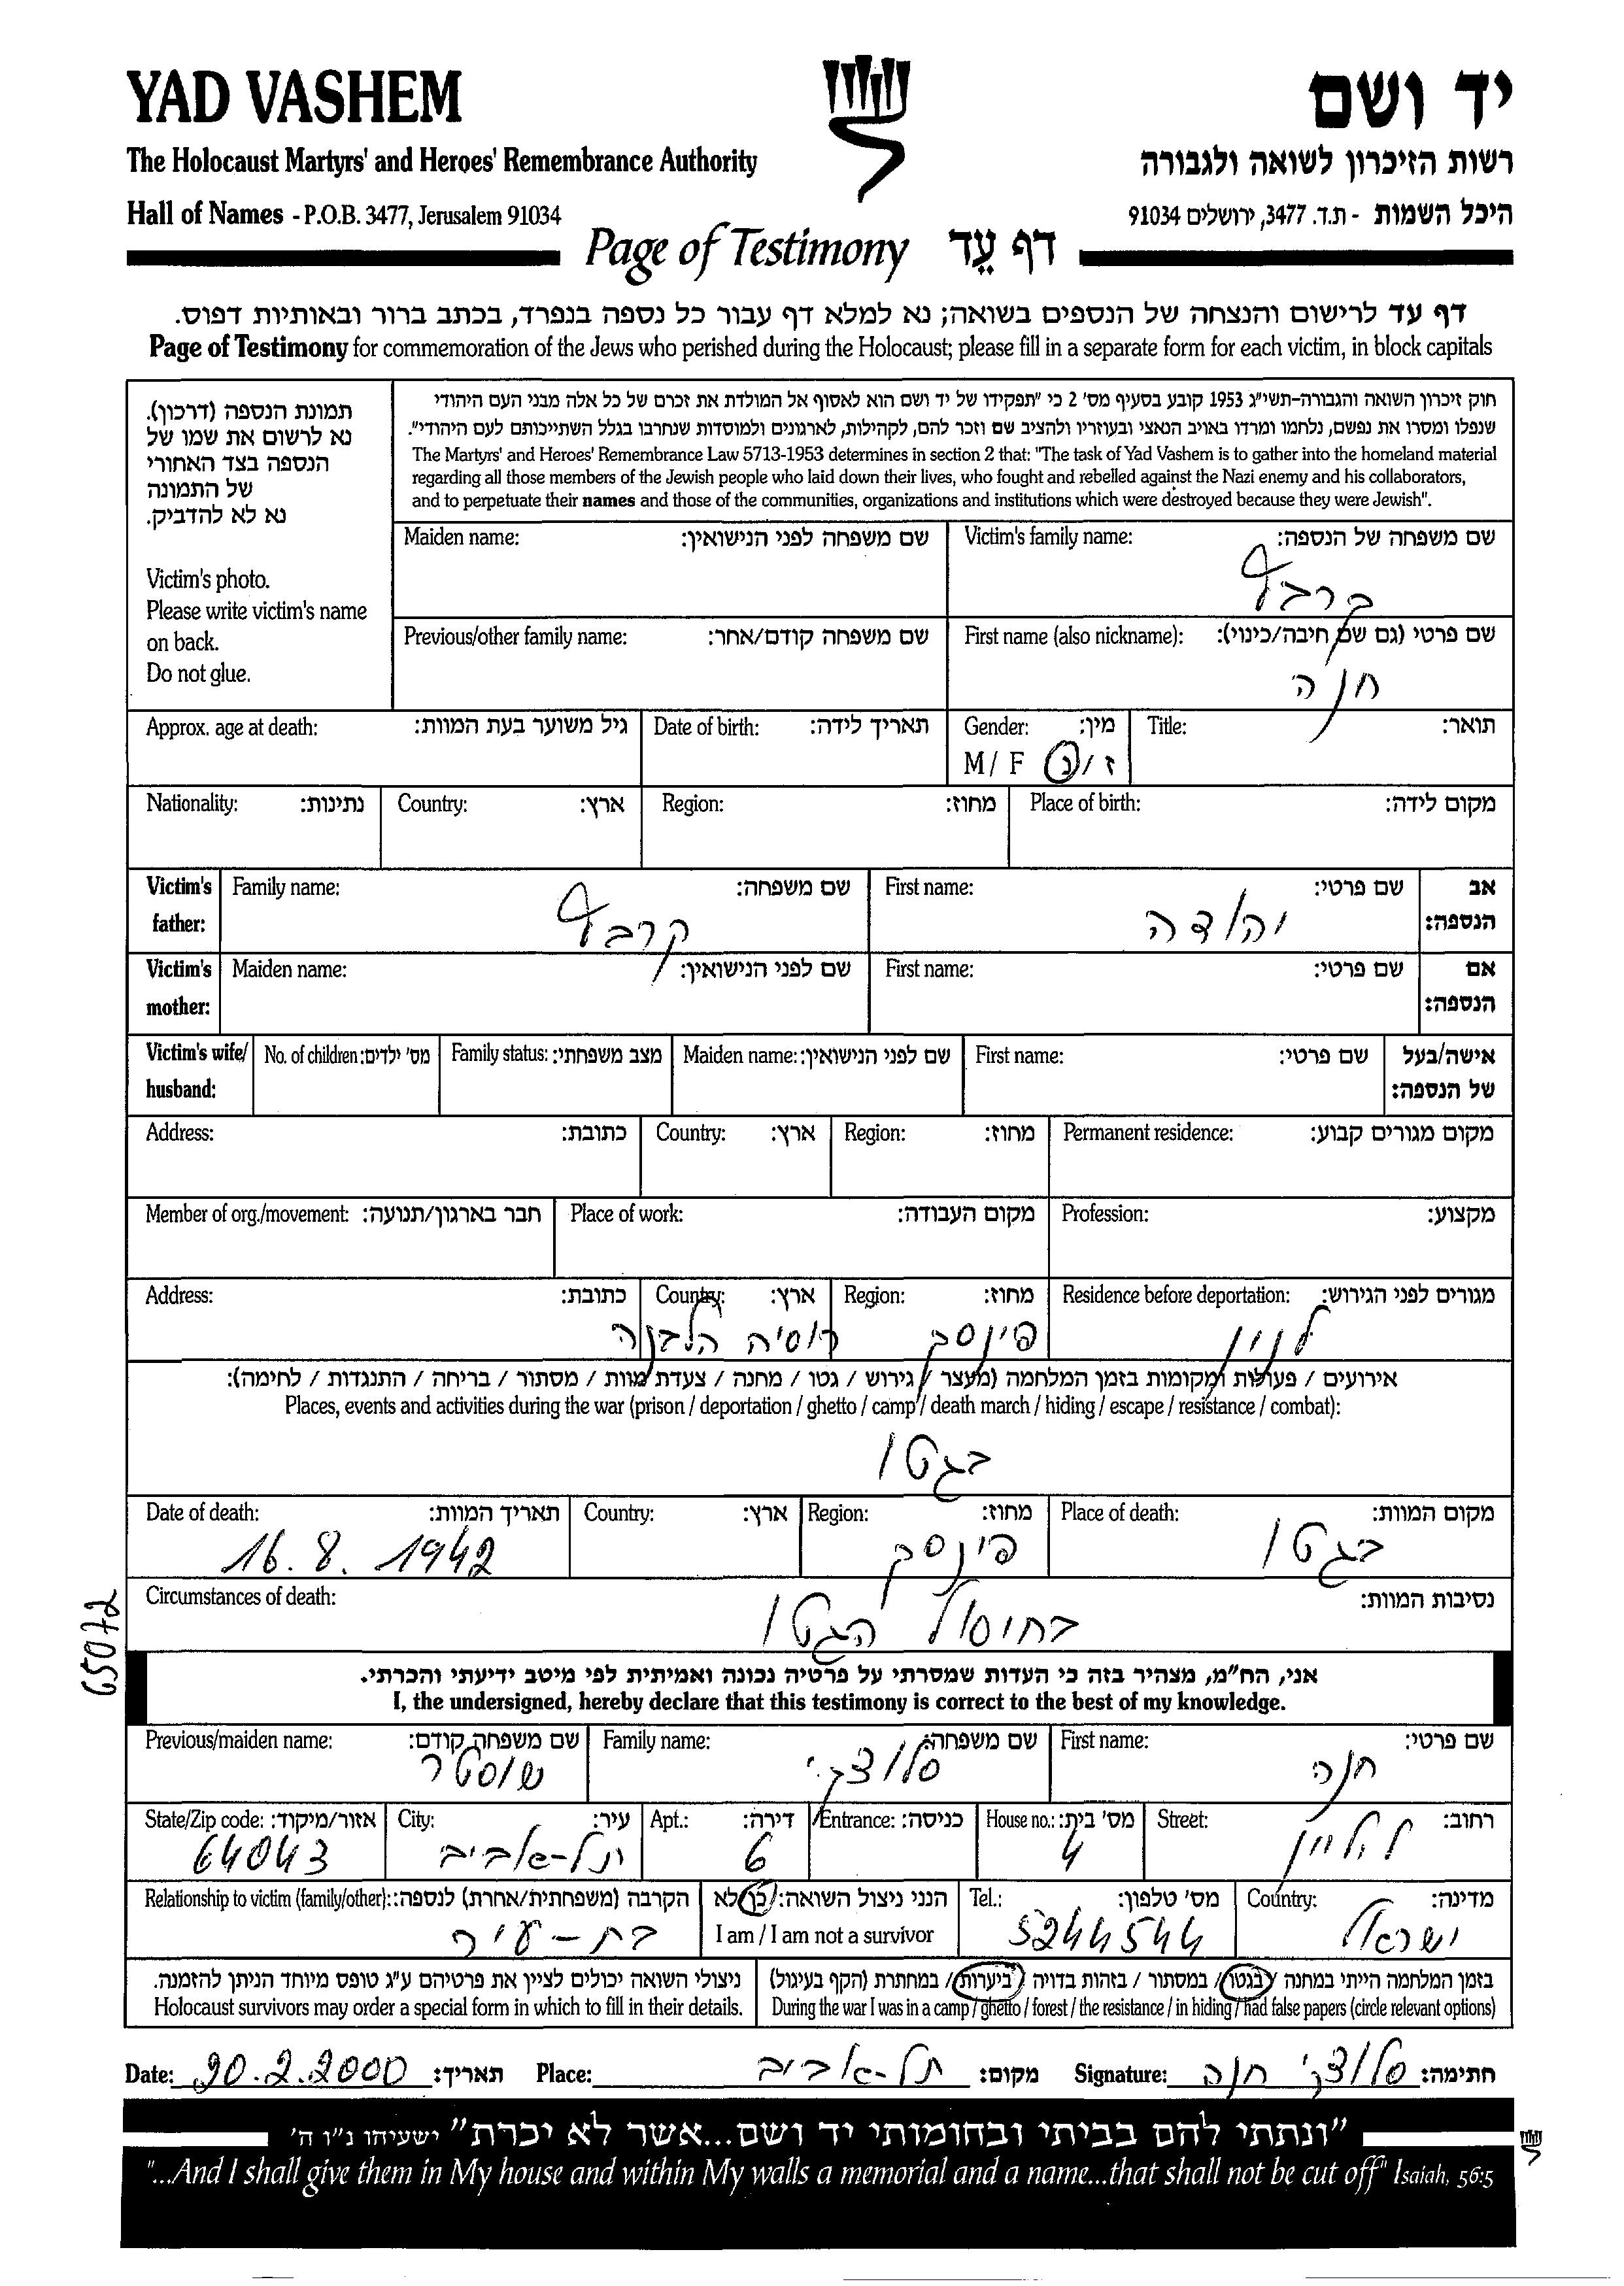 YAD VASHEM
יד ושם
The Holocaust Martyrs' and Heroes' Remembrance Authority
רשות הזיכרון לשואה ולגבורה
Hall of Names - P.O.B. 3477, Jerusalem 91034
היכל השמות - ת.ד. 3477, ירושלים 91034
Page of Testimony דף עֵד
דף עד לרישום והנצחה של הנספים בשואה; נא למלא דף עבור כל נספה בנפרד, בכתב ברור ובאותיות דפוס.
Page of Testimony for commemoration of the Jews who perished during the Holocaust; please fill in a separate form for each victim, in block capitals
תמונת הנספה (דרכון).
נא לרשום את שמו של
הנספה בצד האחורי
של התמונה
נא לא להדביק.
Victim's photo.
Please write victim's name
on back.
Do not glue.
חוק זיכרון השואה והגבורה-תשי"ג 1953 קובע בסעיף מס' 2 כי "תפקידו של יד ושם הוא לאסוף אל המולדת את זכרם של כל אלה מבני העם היהודי
שנפלו ומסרו את נפשם, נלחמו ומרדו באויב הנאצי ובעוזריו ולהציב שם וזכר להם, לקהילות, לארגונים ולמוסדות שנחרבו בגלל השתייכותם לעם היהודי".
The Martyrs' and Heroes' Remembrance Law 5713-1953 determines in section 2 that: "The task of Yad Vashem is to gather into the homeland material
regarding all those members of the Jewish people who laid down their lives, who fought and rebelled against the Nazi enemy and his collaborators,
and to perpetuate their names and those of the communities, organizations and institutions which were destroyed because they were Jewish".
Victim's family name: שם משפחה של הנספה:
קרבצ'יק
Maiden name: שם משפחה לפני הנישואין:
First name (also nickname): שם פרטי (גם שם חיבה/כינוי):
חנה
Previous/other family name: שם משפחה קודם/אחר:
Title: תואר:
Gender: מין:
M / F ז / נ
Date of birth: תאריך לידה:
Approx. age at death: גיל משוער בעת המוות:
Place of birth: מקום לידה:
Region: מחוז:
Country: ארץ:
Nationality: נתינות:
אב הנספה: Victim's father:
First name: שם פרטי:
יהודה
Family name: שם משפחה:
אם הנספה: Victim's mother:
First name: שם פרטי:
Maiden name: שם לפני הנישואין:
אישה/בעל של הנספה: Victim's wife/ husband:
First name: שם פרטי:
Maiden name: שם לפני הנישואין:
Family status: מצב משפחתי:
No. of children: מס' ילדים:
Permanent residence: מקום מגורים קבוע:
Region: מחוז:
Country: ארץ:
Address: כתובת:
Profession: מקצוע:
Place of work: מקום העבודה:
Member of org./movement: חבר בארגון/תנועה:
Residence before deportation: מגורים לפני הגירוש:
לנין
Region: מחוז:
פינסק
Country: ארץ:
רוסיה הלבנה
Address: כתובת:
אירועים / פעולות ומקומות בזמן המלחמה (מעצר / גירוש / גטו / מחנה / צעדת מוות / מסתור / בריחה / התנגדות / לחימה):
Places, events and activities during the war (prison / deportation / ghetto / camp / death march / hiding / escape / resistance / combat):
בגטו
Place of death: מקום המוות:
בגטו
Region: מחוז:
פינסק
Country: ארץ:
Date of death: תאריך המוות:
16.8. 1942
Circumstances of death: נסיבות המוות:
בחיסול הגטו
65072
אני, הח"מ, מצהיר בזה כי העדות שמסרתי על פרטיה נכונה ואמיתית לפי מיטב ידיעתי והכרתי.
I, the undersigned, hereby declare that this testimony is correct to the best of my knowledge.
First name: שם פרטי:
חנה
Family name: שם משפחה:
סלוצקי
Previous/maiden name: שם משפחה קודם:
שוסטר
Street: רחוב:
House no.: מס' בית:
4
Entrance: כניסה:
Apt.: דירה:
6
City: עיר:
תל-אביב
State/Zip code: אזור/מיקוד:
64043
Country: מדינה:
ישראל
Tel.: מס' טלפון:
5244544
הנני ניצול השואה: כן/לא
I am / I am not a survivor
Relationship to victim (family/other): הקרבה (משפחתית/אחרת) לנספה:
בת-עיר
בזמן המלחמה הייתי במחנה / בגטו / במסתור / בזהות בדויה / ביערות / במחתרת (הקף בעיגול)
During the war I was in a camp / ghetto / forest / the resistance / in hiding / had false papers (circle relevant options)
ניצולי השואה יכולים לציין את פרטיהם ע"ג טופס מיוחד הניתן להזמנה.
Holocaust survivors may order a special form in which to fill in their details.
Date: 20.2.2000 תאריך: Place: תל-אביב מקום: Signature: סלוצקי חנה חתימה:
"ונתתי להם בביתי ובחומותי יד ושם...אשר לא יכרת" ישעיהו נ"ו ה'
"...And I shall give them in My house and within My walls a memorial and a name...that shall not be cut off" Isaiah, 56:5